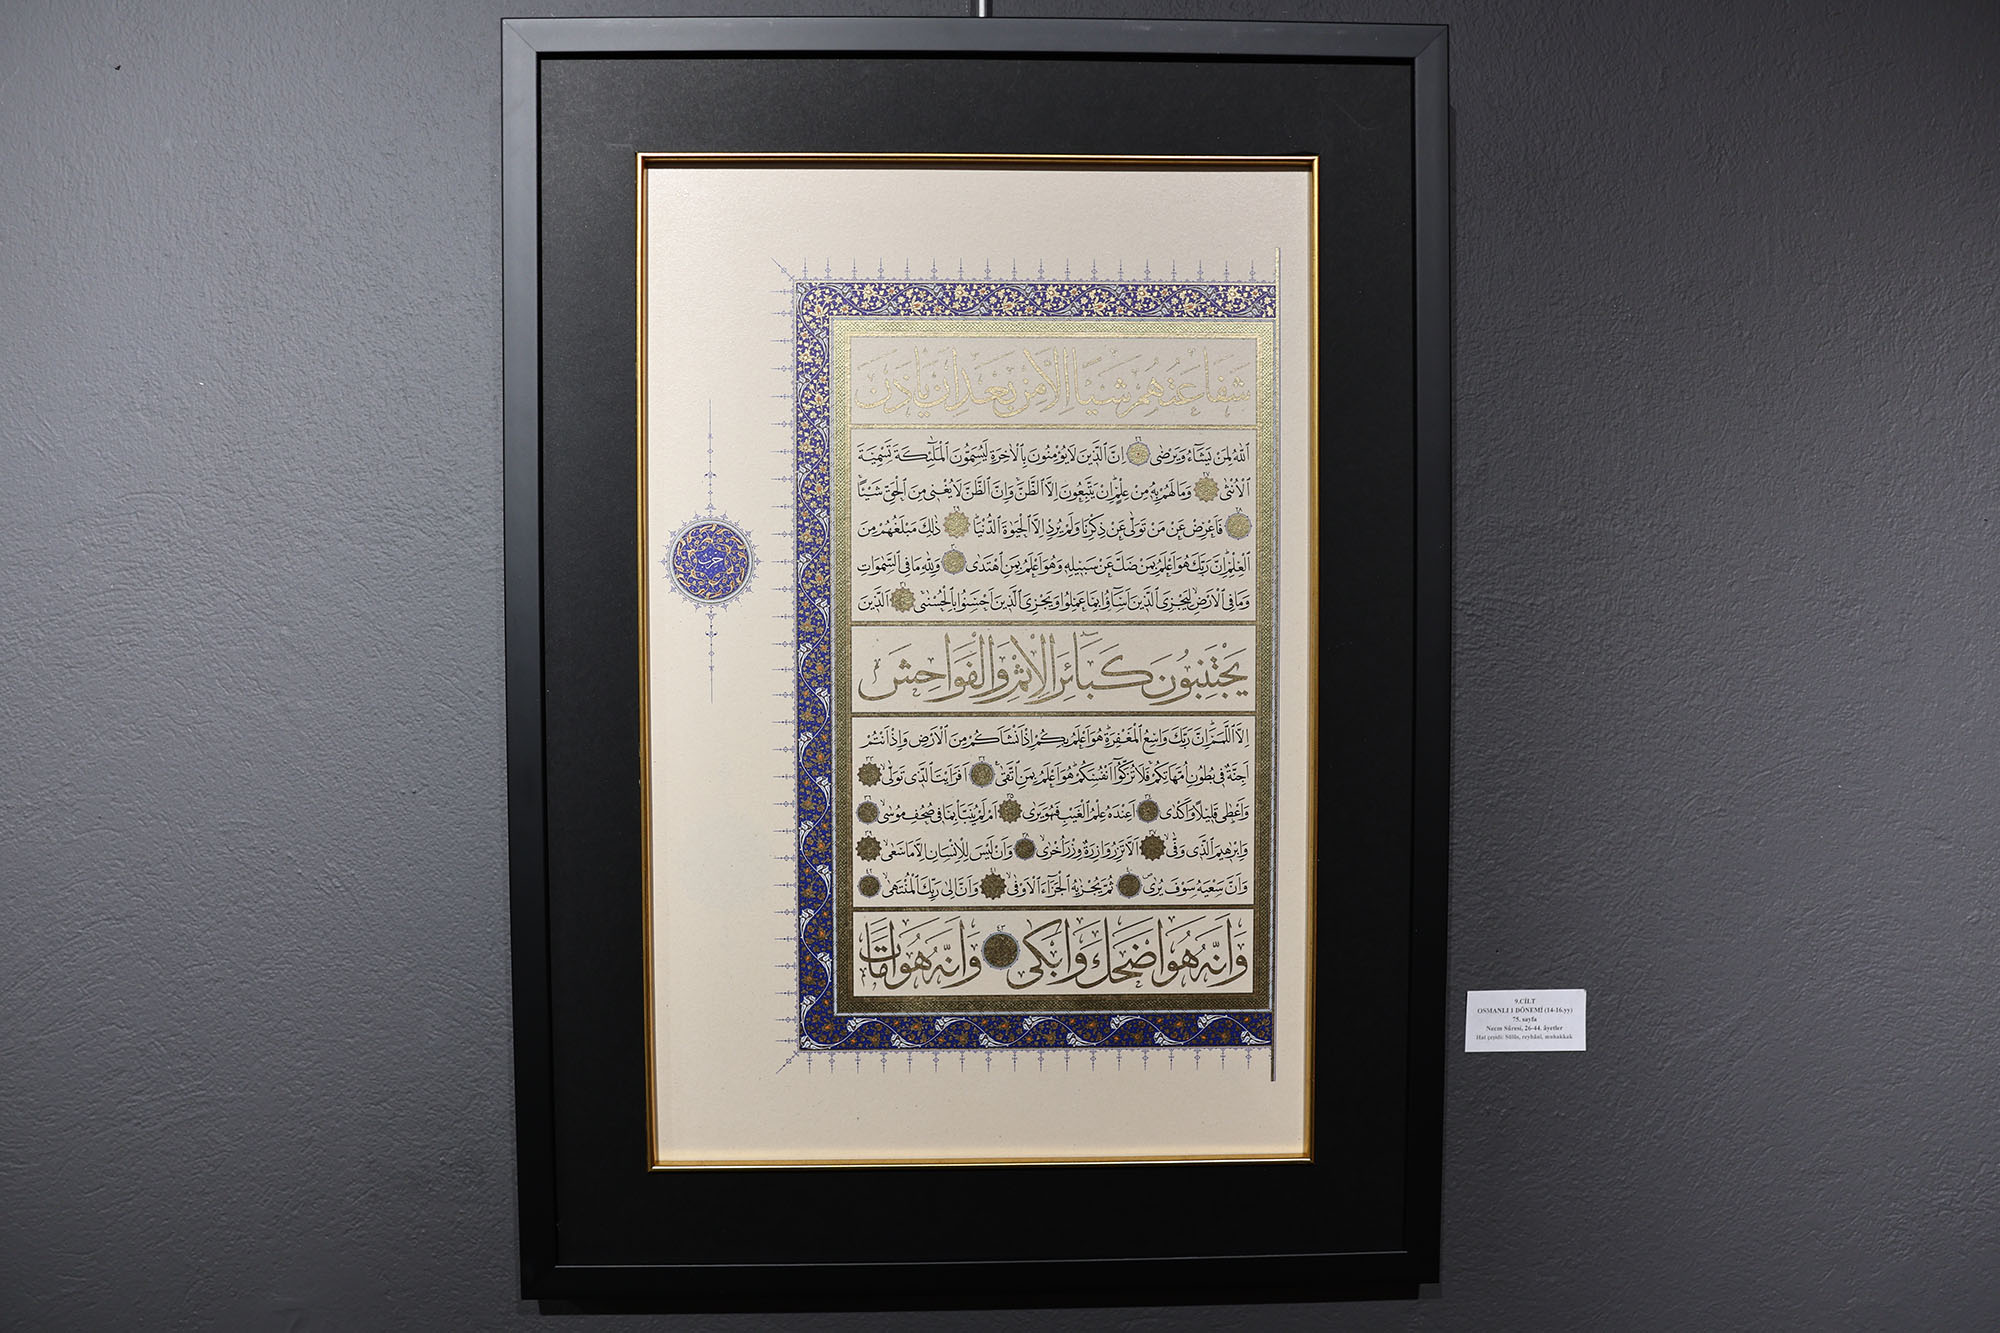 شَفَاعَتُهُمْ شَيْـًٔا اِلَّا مِنْ بَعْدِ اَنْ يَأْذَنَ
اللّٰهُ لِمَنْ يَشَٓاءُ وَيَرْضٰى ٢٦ اِنَّ الَّذ۪ينَ لَا يُؤْمِنُونَ بِالْاٰخِرَةِ لَيُسَمُّونَ الْمَلٰٓئِكَةَ تَسْمِيَةَ
الْاُنْثٰى ٢٧ وَمَا لَهُمْ بِه۪ مِنْ عِلْمٍۜ اِنْ يَتَّبِعُونَ اِلَّا الظَّنَّۚ وَاِنَّ الظَّنَّ لَا يُغْن۪ي مِنَ الْحَقِّ شَيْـًٔاۚ
٢٨ فَاَعْرِضْ عَنْ مَنْ تَوَلّٰى عَنْ ذِكْرِنَا وَلَمْ يُرِدْ اِلَّا الْحَيٰوةَ الدُّنْيَاۜ ٢٩ ذٰلِكَ مَبْلَغُهُمْ مِنَ
الْعِلْمِۜ اِنَّ رَبَّكَ هُوَ اَعْلَمُ بِمَنْ ضَلَّ عَنْ سَب۪يلِه۪ وَهُوَ اَعْلَمُ بِمَنِ اهْتَدٰى ٣٠ وَلِلّٰهِ مَا فِي السَّمٰوَاتِ
وَمَا فِي الْاَرْضِۙ لِيَجْزِيَ الَّذ۪ينَ اَسَٓاؤُ۫ا بِمَا عَمِلُوا وَيَجْزِيَ الَّذ۪ينَ اَحْسَنُوا بِالْحُسْنٰىۚ ٣١ اَلَّذ۪ينَ
يَجْتَنِبُونَ كَبَٓائِرَ الْاِثْمِ وَالْفَوَاحِشَ
اِلَّا اللَّمَمَۜ اِنَّ رَبَّكَ وَاسِعُ الْمَغْفِرَةِۜ هُوَ اَعْلَمُ بِكُمْ اِذْ اَنْشَاَكُمْ مِنَ الْاَرْضِ وَاِذْ اَنْتُمْ
اَجِنَّةٌ ف۪ي بُطُونِ اُمَّهَاتِكُمْۚ فَلَا تُزَكُّٓوا اَنْفُسَكُمْۜ هُوَ اَعْلَمُ بِمَنِ اتَّقٰى ٣٢ اَفَرَاَيْتَ الَّذ۪ي تَوَلّٰىۙ ٣٣
وَاَعْطٰى قَل۪يلًا وَاَكْدٰى ٣٤ اَعِنْدَهُ عِلْمُ الْغَيْبِ فَهُوَ يَرٰى ٣٥ اَمْ لَمْ يُنَبَّأْ بِمَا ف۪ي صُحُفِ مُوسٰىۙ ٣٦
وَاِبْرٰه۪يمَ الَّذ۪ي وَفّٰىۙ ٣٧ اَلَّا تَزِرُ وَازِرَةٌ وِزْرَ اُخْرٰىۙ ٣٨ وَاَنْ لَيْسَ لِلْاِنْسَانِ اِلَّا مَا سَعٰىۙ ٣٩
وَاَنَّ سَعْيَهُ سَوْفَ يُرٰىۖ ٤٠ ثُمَّ يُجْزٰيهُ الْجَزَٓاءَ الْاَوْفٰىۙ ٤١ وَاَنَّ اِلٰى رَبِّكَ الْمُنْتَهٰىۙ ٤٢
وَاَنَّهُ هُوَ اَضْحَكَ وَاَبْكٰىۙ ٤٣ وَاَنَّهُ هُوَ اَمَاتَ
حزب
9.CİLT
OSMANLI 1 DÖNEMİ (14-16.yy)
75. sayfa
Necm Sûresi, 26-44. âyetler
Hat çeşidi: Sülüs, reyhânî, muhakkak